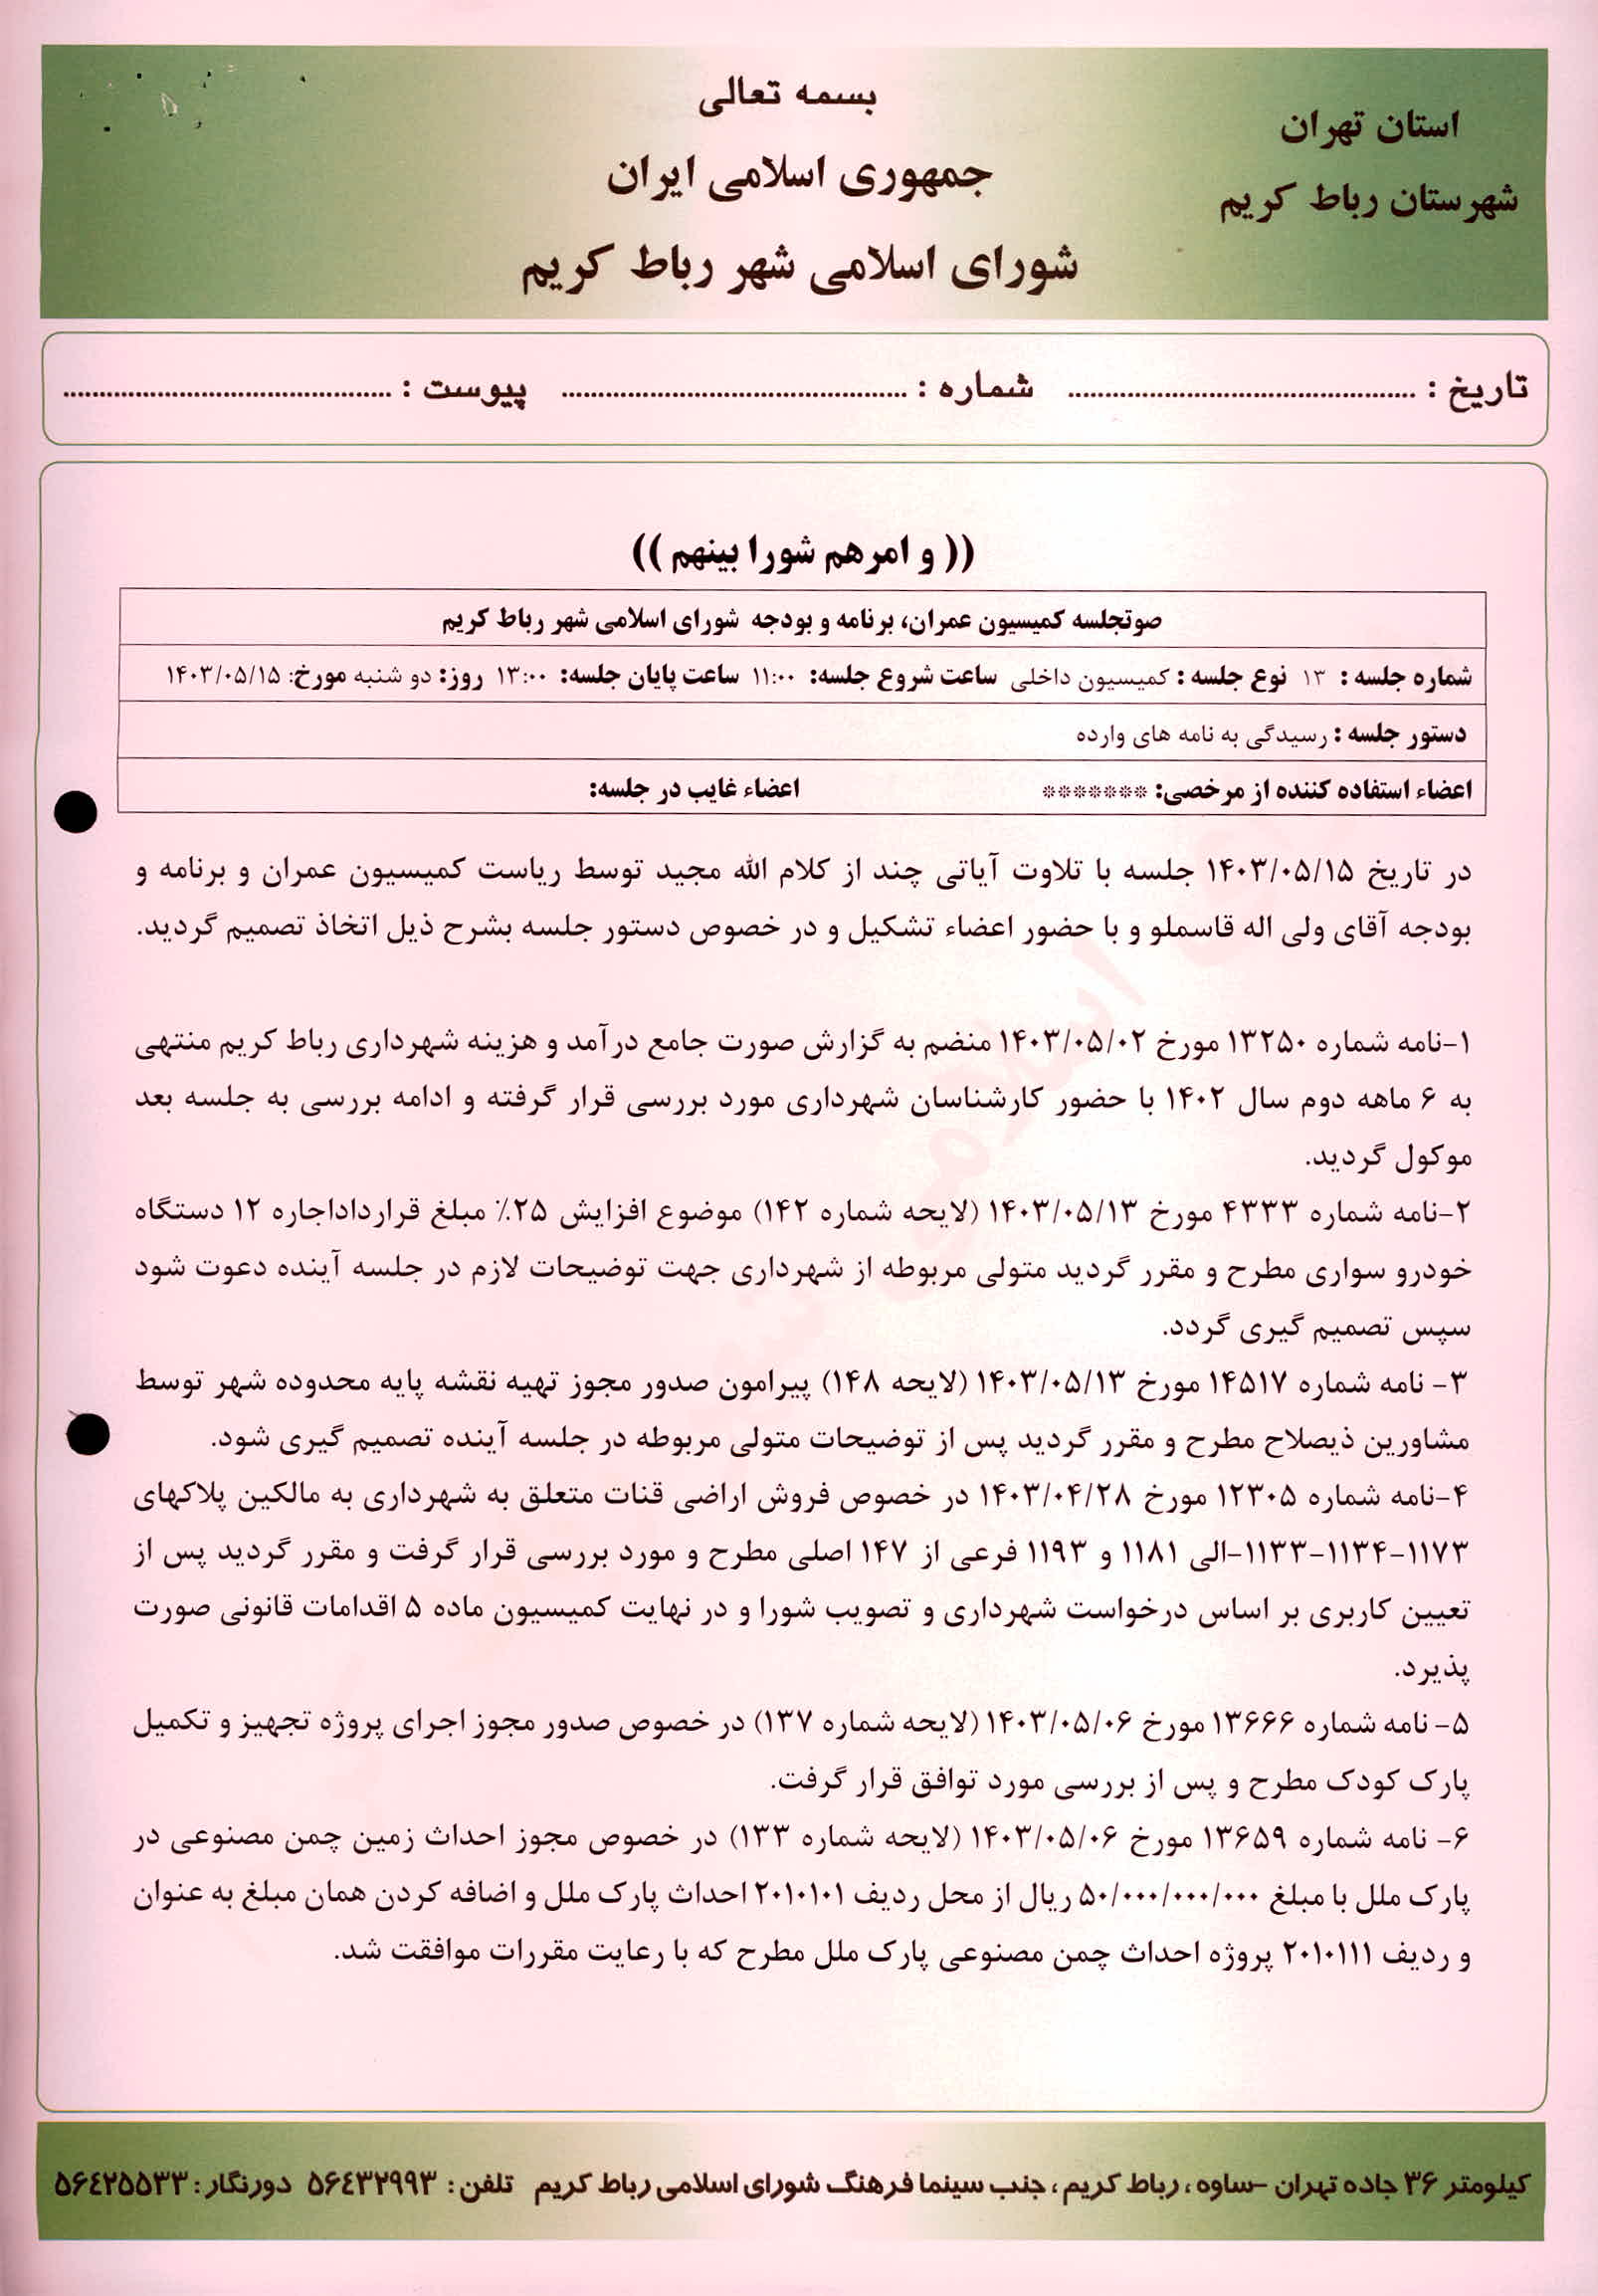 بسمه تعالی
استان تهران
جمهوری اسلامی ایران
شهرستان رباط کریم
شورای اسلامی شهر رباط کریم
تاریخ : ................ شماره : ................ پیوست : ................
(( و امرهم شورا بینهم ))
صوتجلسه کمیسیون عمران، برنامه و بودجه شورای اسلامی شهر رباط کریم
شماره جلسه : ۱۳ نوع جلسه : کمیسیون داخلی ساعت شروع جلسه: ۱۱:۰۰ ساعت پایان جلسه: ۱۳:۰۰ روز: دو شنبه مورخ: ۱۴۰۳/۰۵/۱۵
دستور جلسه : رسیدگی به نامه های وارده
اعضاء استفاده کننده از مرخصی: ******* اعضاء غایب در جلسه:
در تاریخ ۱۴۰۳/۰۵/۱۵ جلسه با تلاوت آیاتی چند از کلام الله مجید توسط ریاست کمیسیون عمران و برنامه و
بودجه آقای ولی اله قاسملو و با حضور اعضاء تشکیل و در خصوص دستور جلسه بشرح ذیل اتخاذ تصمیم گردید.
۱-نامه شماره ۱۳۲۵۰ مورخ ۱۴۰۳/۰۵/۰۲ منضم به گزارش صورت جامع درآمد و هزینه شهرداری رباط کریم منتهی
به ۶ ماهه دوم سال ۱۴۰۲ با حضور کارشناسان شهرداری مورد بررسی قرار گرفته و ادامه بررسی به جلسه بعد
موکول گردید.
۲-نامه شماره ۴۳۳۳ مورخ ۱۴۰۳/۰۵/۱۳ (لایحه شماره ۱۴۲) موضوع افزایش ۲۵٪ مبلغ قرارداداجاره ۱۲ دستگاه
خودرو سواری مطرح و مقرر گردید متولی مربوطه از شهرداری جهت توضیحات لازم در جلسه آینده دعوت شود
سپس تصمیم گیری گردد.
۳- نامه شماره ۱۴۵۱۷ مورخ ۱۴۰۳/۰۵/۱۳ (لایحه ۱۴۸) پیرامون صدور مجوز تهیه نقشه پایه محدوده شهر توسط
مشاورین ذیصلاح مطرح و مقرر گردید پس از توضیحات متولی مربوطه در جلسه آینده تصمیم گیری شود.
۴-نامه شماره ۱۲۳۰۵ مورخ ۱۴۰۳/۰۴/۲۸ در خصوص فروش اراضی قنات متعلق به شهرداری به مالکین پلاکهای
۱۱۷۳-۱۱۳۴-۱۱۳۳-الی ۱۱۸۱ و ۱۱۹۳ فرعی از ۱۴۷ اصلی مطرح و مورد بررسی قرار گرفت و مقرر گردید پس از
تعیین کاربری بر اساس درخواست شهرداری و تصویب شورا و در نهایت کمیسیون ماده ۵ اقدامات قانونی صورت
پذیرد.
۵- نامه شماره ۱۳۶۶۶ مورخ ۱۴۰۳/۰۵/۰۶ (لایحه شماره ۱۳۷) در خصوص صدور مجوز اجرای پروژه تجهیز و تکمیل
پارک کودک مطرح و پس از بررسی مورد توافق قرار گرفت.
۶- نامه شماره ۱۳۶۵۹ مورخ ۱۴۰۳/۰۵/۰۶ (لایحه شماره ۱۳۳) در خصوص مجوز احداث زمین چمن مصنوعی در
پارک ملل با مبلغ ۵۰/۰۰۰/۰۰۰/۰۰۰ ریال از محل ردیف ۲۰۱۰۱۰۱ احداث پارک ملل و اضافه کردن همان مبلغ به عنوان
و ردیف ۲۰۱۰۱۱۱ پروژه احداث چمن مصنوعی پارک ملل مطرح که با رعایت مقررات موافقت شد.
کیلومتر ۳۶ جاده تهران -ساوه، رباط کریم، جنب سینما فرهنگ شورای اسلامی رباط کریم تلفن: ۵۶۴۳۲۹۹۳ دورنگار: ۵۶۴۲۵۵۳۳